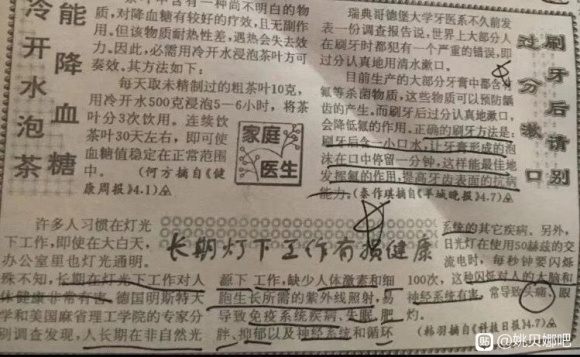 冷开水泡茶
能降血糖
叶中含有一种尚不明白的物
质,对降血糖有较好的疗效,且无副作
用。但该物质耐热性差,遇热会失去效
力。因此,必需用冷开水浸泡茶叶方可
奏效。其方法如下:
每天取未精制过的粗茶叶10克,
用冷开水500克浸泡5—6小时,将茶
叶分3次饮用。连续饮
茶叶30天左右,即可使
血糖值稳定在正常范围
中。 (何方摘自《健
康周报》4.1)△
家庭
医生
瑞典哥德堡大学牙医系不久前发
表一份调查报告说,世界上大部分人
在刷牙时都犯有一个严重的错误,即
过分认真地用清水漱口。
目前生产的大部分牙膏中都含有
氟等杀菌物质,这些物质可以预防龋
齿的产生,而刷牙后过分认真地漱口,
会降低氟的作用。正确的刷牙方法是:
刷牙后含一小口水,让牙膏形成的泡
沫在口中停留一分钟,这样能最佳地
发挥氟的作用,提高牙齿表面的抗病
能力。(秦作琪摘自《羊城晚报》4.7)△
刷牙后请别
过分漱口
长期灯下工作有损健康
许多人习惯在灯光
下工作,即使在大白天,
办公室里也灯光通明。
殊不知,长期在灯光下工作对人
体健康非常有害。德国明斯特大
学和美国麻省理工学院的专家分
别调查发现,人长期在非自然光
源下工作,缺少人体激素和细
胞生长所需的紫外线照射,易
导致免疫系统疾病、失眠、肥
胖、抑郁以及神经系统和循环
系统的其它疾病。另外,
日光灯在使用50赫兹的交
流电时,每秒钟要闪烁
100次,这种闪烁对人的大脑和
神经系统有害,常导致头痛、眼
灼。
(韩羽摘自《科技日报》4.7)△
贴 @姚贝娜吧